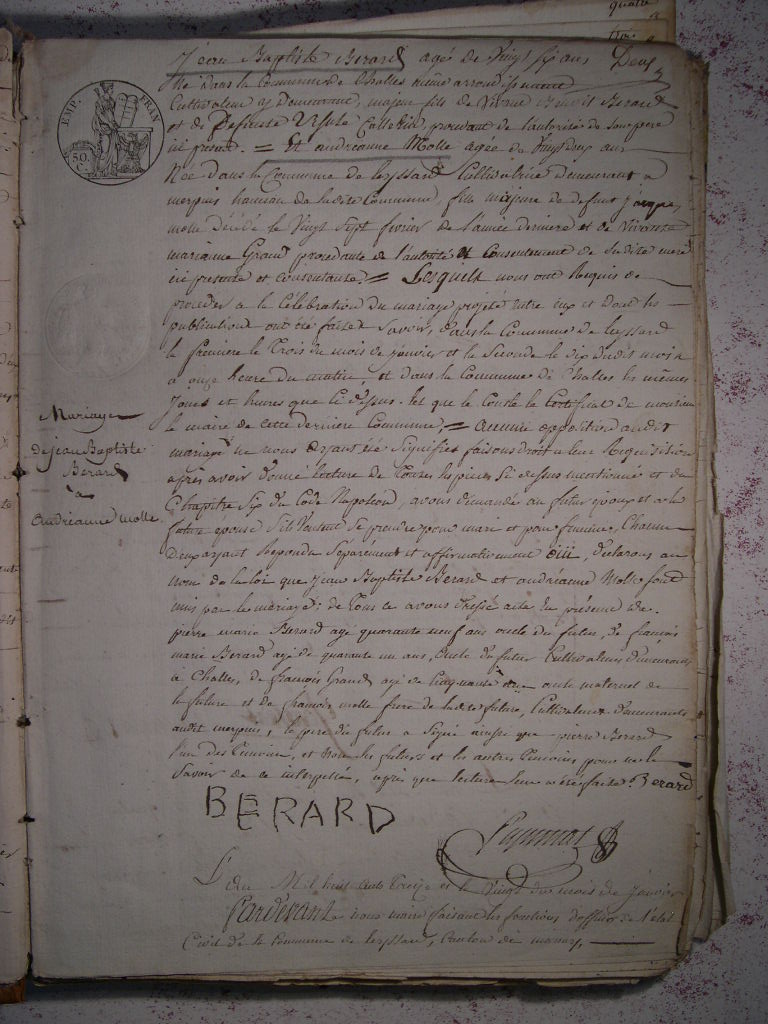 Jean Baptiste Berard agé de Vingt six ans Deux
Né dans la Commune de Challes même arrondissement
Cultivateur y Demeurant, majeur fils de Vivant Benoit Berard
et de Defunte Ursule procedant de l'autorité de son pere
ici present. = Et andréanne Molle agée de Vingt deux ans
Née Dans la Commune de leyssard Cultivatrice Demeurant a
merpuis hameau de Sudite Commune, fille majeure de defunt Jacques
molle Décédé le Vingt Sept fevrier de l'année derniere et de Vivante
marianne Grand procedante de l'autorité & Consentement de Sudite mere
ici presente et consentante. = Lesquels nous ont Requis de
proceder a la Célébration du mariage projeté entre eux et dont les
publications ont été faites Savoir, dans la Commune de leyssard
la premiere le Trois du mois de Janvier et la Seconde le dix dudit mois
a onze heure du matin, et dans la Commune de Challes les mêmes
Jours et heures que Ci dessus. tel que le Conste le Certificat de monsieur
le maire de cette derniere Commune, = aucune opposition audit
mariage ne nous ayant été Signifiée faisons droit a leur Requisition
après avoir donné lecture de Toutes les pieces Ci dessus mentionné et du
Chapitre Six du Code Napoléon, avons demandé au futur epoux et a la
future epouse S'ils Veulent Se prendre pour mari et pour femme, Chacun
Deux ayant Repondu Separement et affirmativement oüi, declarons au
nom de la loi que Jean Baptiste Berard et andréanne Molle Sont
unis par le mariage: de Tous ce avons Dressé acte En présence de
pierre marie Berard agé quarante neuf ans oncle du futur, de françois
marie Berard agé de quarante un ans, oncle du futur Cultivateurs demeurants
à Challes, de françois Grand agé de Cinquante ans oncle maternel de
la future et de françois molle frere de ladite future, Cultivateur demeurants
audit merpuis, le pere du futur a Signé ainsi que pierre Berard
l'un des Temoins, et non les futurs et les autres Temoins pour ne le
Savoir de ce interpellé, après que lecture leur a été faite. Berard
BERARD
L'an Mil huit Cents Treize et le Vingt du mois de Janvier
Pardevant nous maire faisant les fonctions d'officier de l'etat
Civil de la Commune de leyssard, Canton de
EMP. FRAN
50. C.
Mariage
de jean Baptiste
Berard
a
andréanne molle